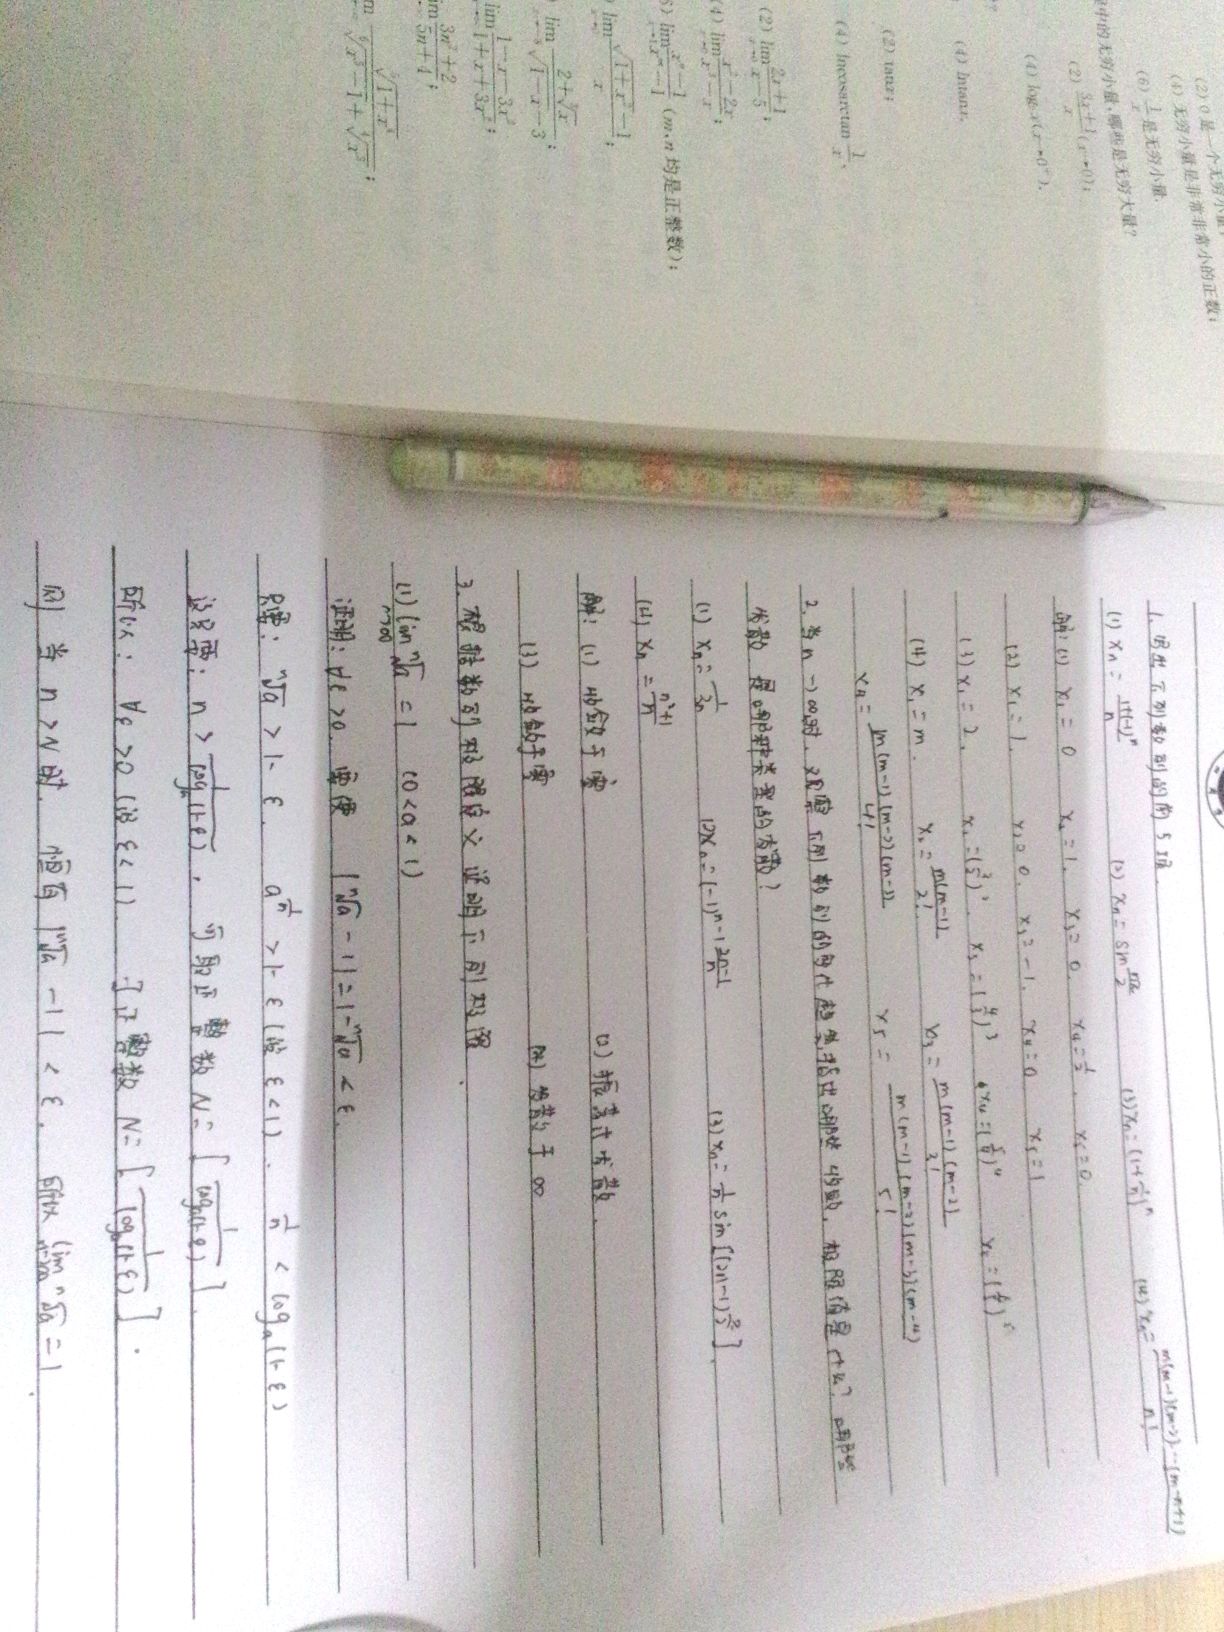 (2) 0是一个无穷小量;
(4) 无穷小量是非常非常小的正数;
(6) 1/x 是无穷小量.
中的无穷小量,哪些是无穷大量?
(2) (3x+1)/x (x→0);
(4) log₂x(x→0⁺).
(4) lntanx.
(2) tanx;
(4) lncosarctan 1/x.
(2) lim (2x+1)/(x-5);
(4) lim (x²-2x)/(x³-x);
(6) lim (xⁿ-1)/(xᵐ-1) (m,n均是正整数);
lim (√(1+x²)-1)/x;
lim (2+∛x)/(√(1-x)-3);
lim (1-x-3x²)/(1+x+3x²);
lim (3n²+2)/(5n+4);
1. 写出下列数列的前5项
(1) xₙ = (1+(-1)ⁿ)/n (2) xₙ = sin nπ/2 (3) xₙ = (1+1/n)ⁿ (4) xₙ = m(m-1)(m-2)…(m-n+1)/n!
解: (1) x₁ = 0 x₂ = 1, x₃ = 0. x₄ = 1/2. x₅ = 0
(2) x₁ = 1. x₂ = 0. x₃ = -1. x₄ = 0 x₅ = 1
(3) x₁ = 2. x₂ = (3/2)² x₃ = (4/3)³ x₄ = (5/4)⁴ x₅ = (6/5)⁵
(4) x₁ = m. x₂ = m(m-1)/2! x₃ = m(m-1)(m-2)/3!
x₄ = m(m-1)(m-2)(m-3)/4! x₅ = m(m-1)(m-2)(m-3)(m-4)/5!
2. 当n→∞时. 观察下列数列的变化趋势,指出哪些收敛. 极限值是什么? 哪些
发散 是哪种类型的发散?
(1) xₙ = 1/3n (2) xₙ = (-1)ⁿ⁻¹ (2n-1)/n (3) xₙ = 1/n sin[(2n-1)π/2].
(4) xₙ = (n²+1)/n
解: (1) 收敛于零 (2) 振荡性发散.
(3) 收敛于零 (4) 发散于∞
3. 根据数列极限定义证明下列极限.
(1) lim n→∞ ⁿ√a = 1 (0<a<1)
证明: ∀ε>0. 要使 |ⁿ√a - 1| = 1-ⁿ√a < ε.
只需: ⁿ√a > 1-ε. a^(1/n) > 1-ε (设ε<1). 1/n < logₐ(1-ε)
即只需: n > 1/logₐ(1-ε). 可取正整数N = [1/logₐ(1-ε)].
所以: ∀ε>0 (设ε<1). ∃正整数N = [1/logₐ(1-ε)].
则当n>N时. 恒有|ⁿ√a -1| < ε. 所以 lim n→∞ ⁿ√a = 1.